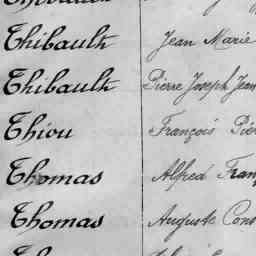 Thibault Jean Marie
Thibault Pierre Joseph Jean
Thiou François Pier
Thomas Alfred Fran
Thomas Auguste Cons